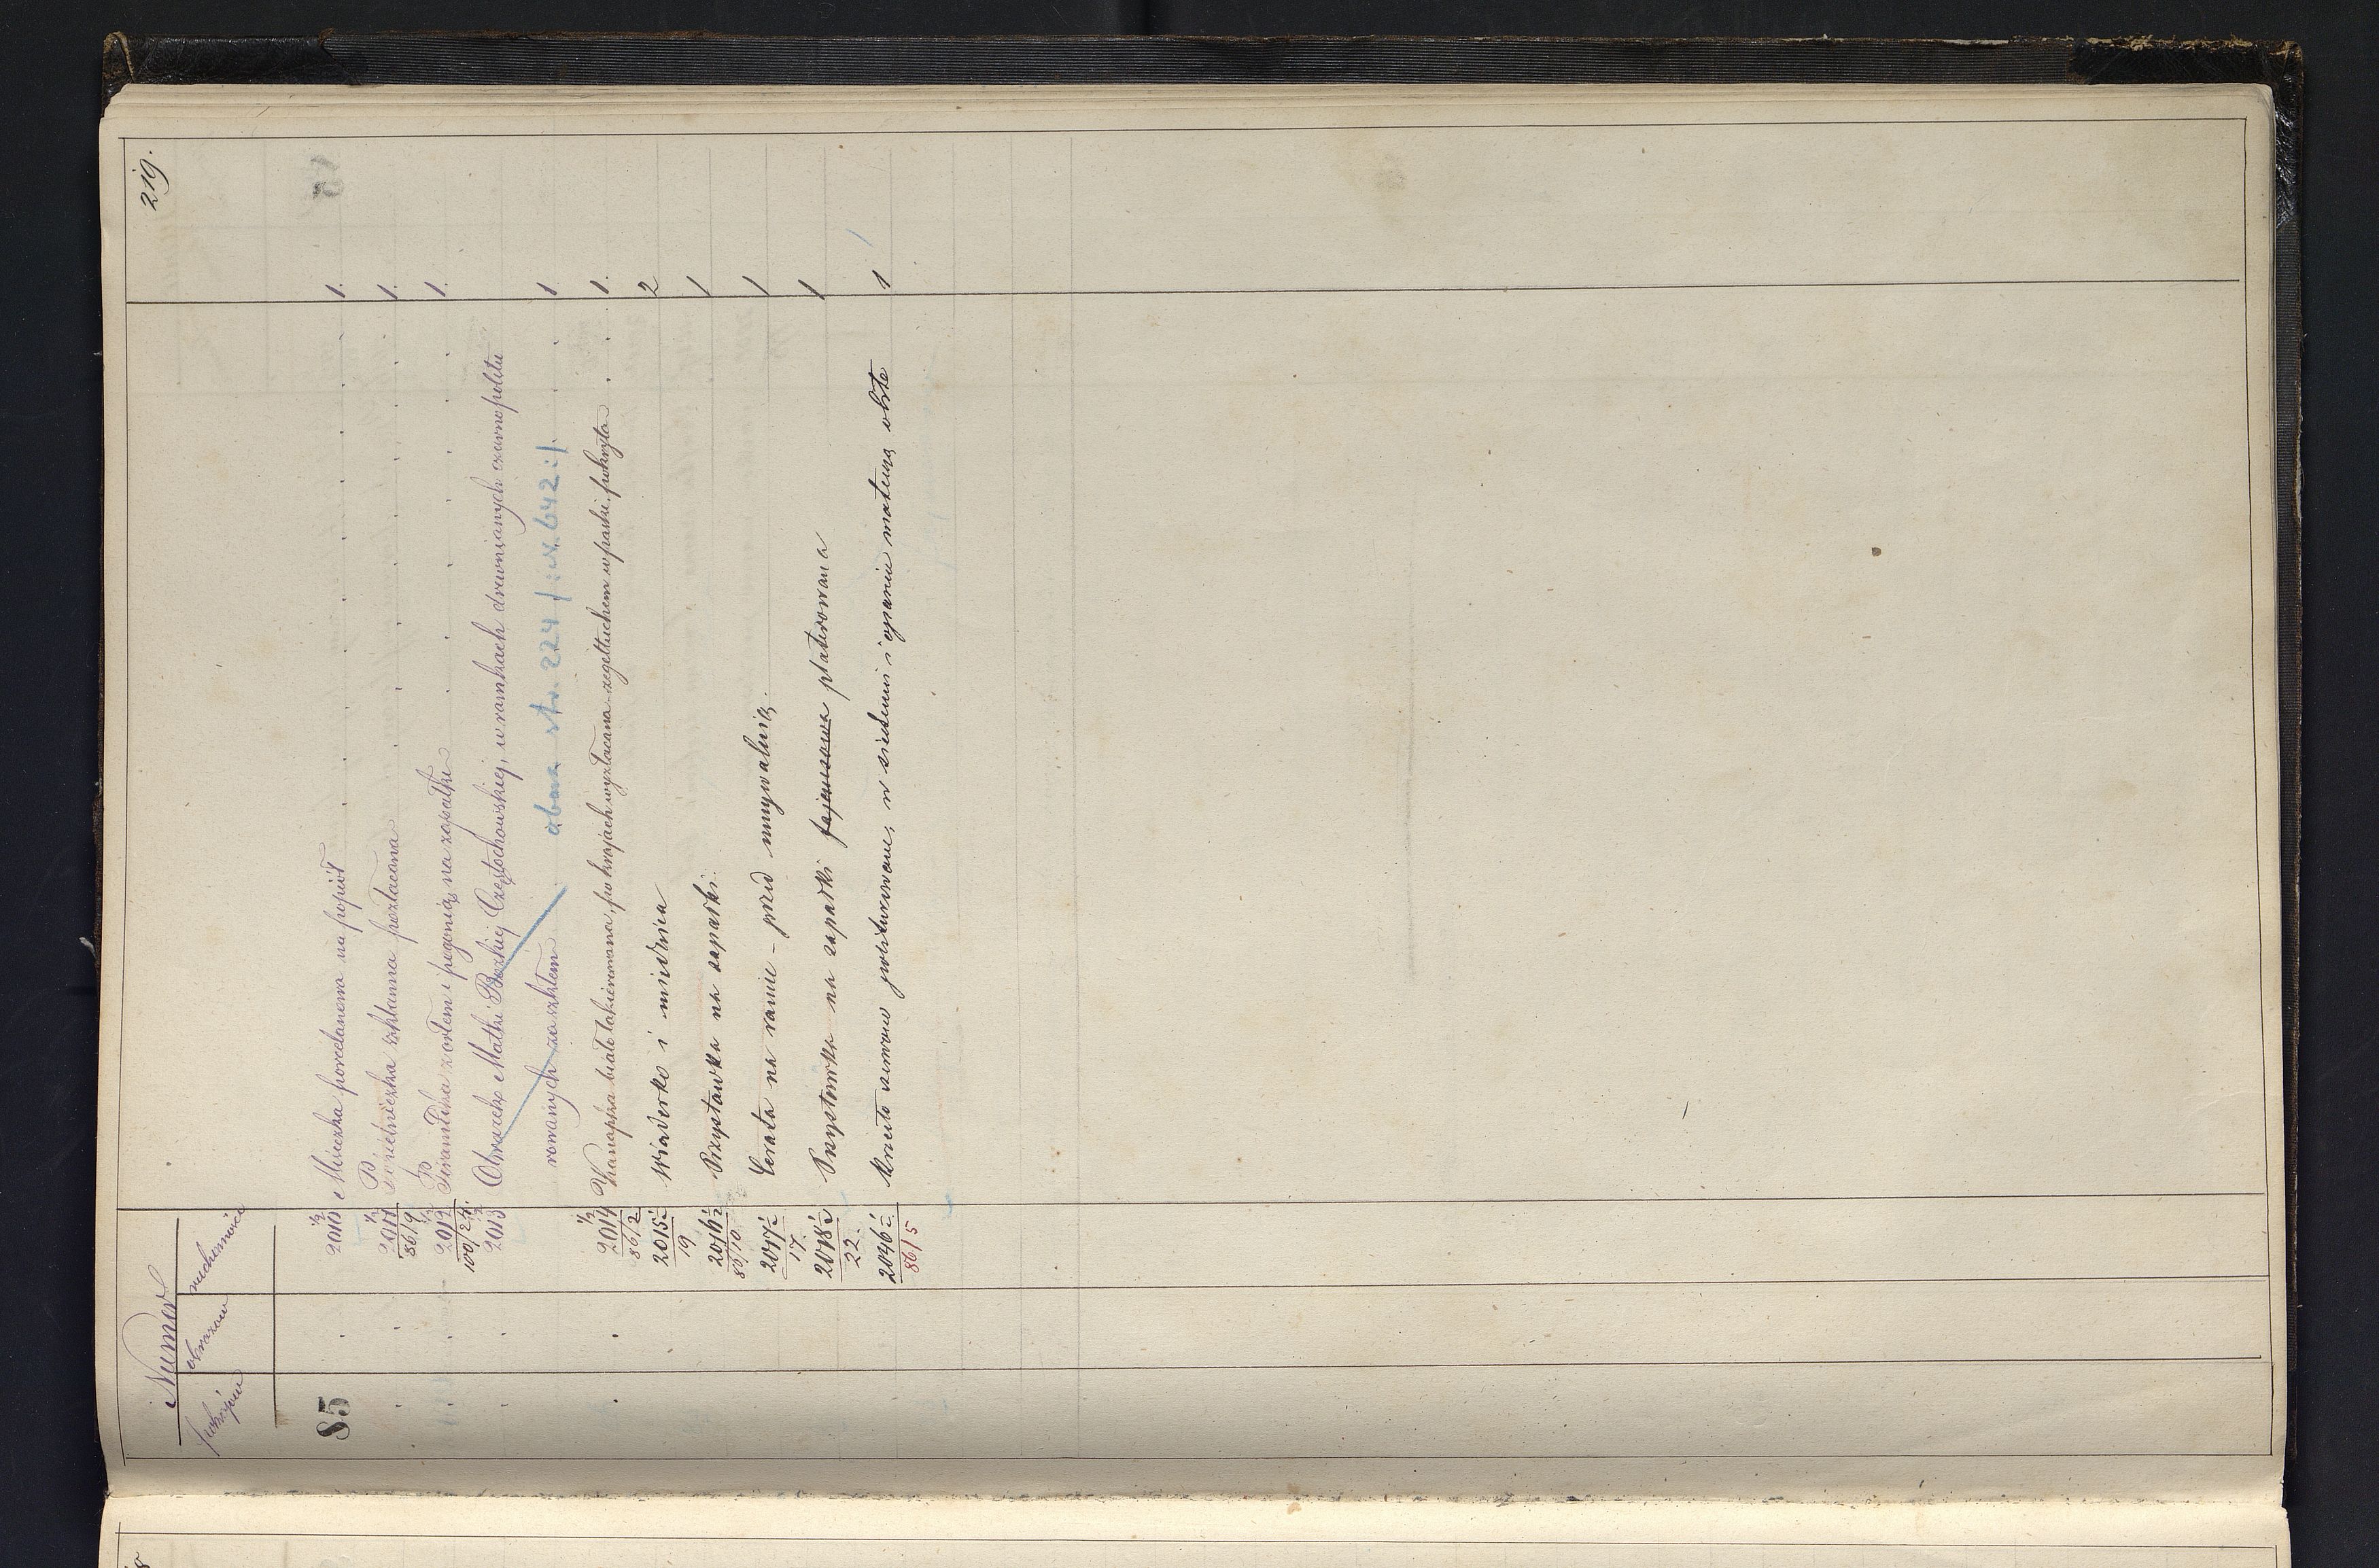 219.
Numer
pokojów obrazów ruchomości
85 2010 1/2 Miseczka porcelanowa na popiół 1.
2011 1/2 86/9 Popielniczka szklanna pozłacana 1.
2012 1/2 100/24. Piramidka z orłem i pogonią na zapałki 1.
2013 1/2 Obrazek Matki Bozkiej Częstochowskiej, w ramkach drewnianych czarno politu
rowanych za szkłem 1
obacz str. 224 /:N. 642:/.
2014 1/2 86/2 Kanapka biało lakierowana, po krajach wyzłacana zegeltuchem w paski pokryta 1.
2015 1/2 19 Wiaderko i miednica 2
2016 1/2 86/10. Przystawka na zapałki. 1
2017 1/2 17. Cerata na ramie - przed umywalnią. 1
2018 1/2 22. Przystawka na zapałki fajansowa platerowana 1
2046 1/2 86/5 Krzesło czarno politurowane, w siedzeniu i oparciu materyą obite 1